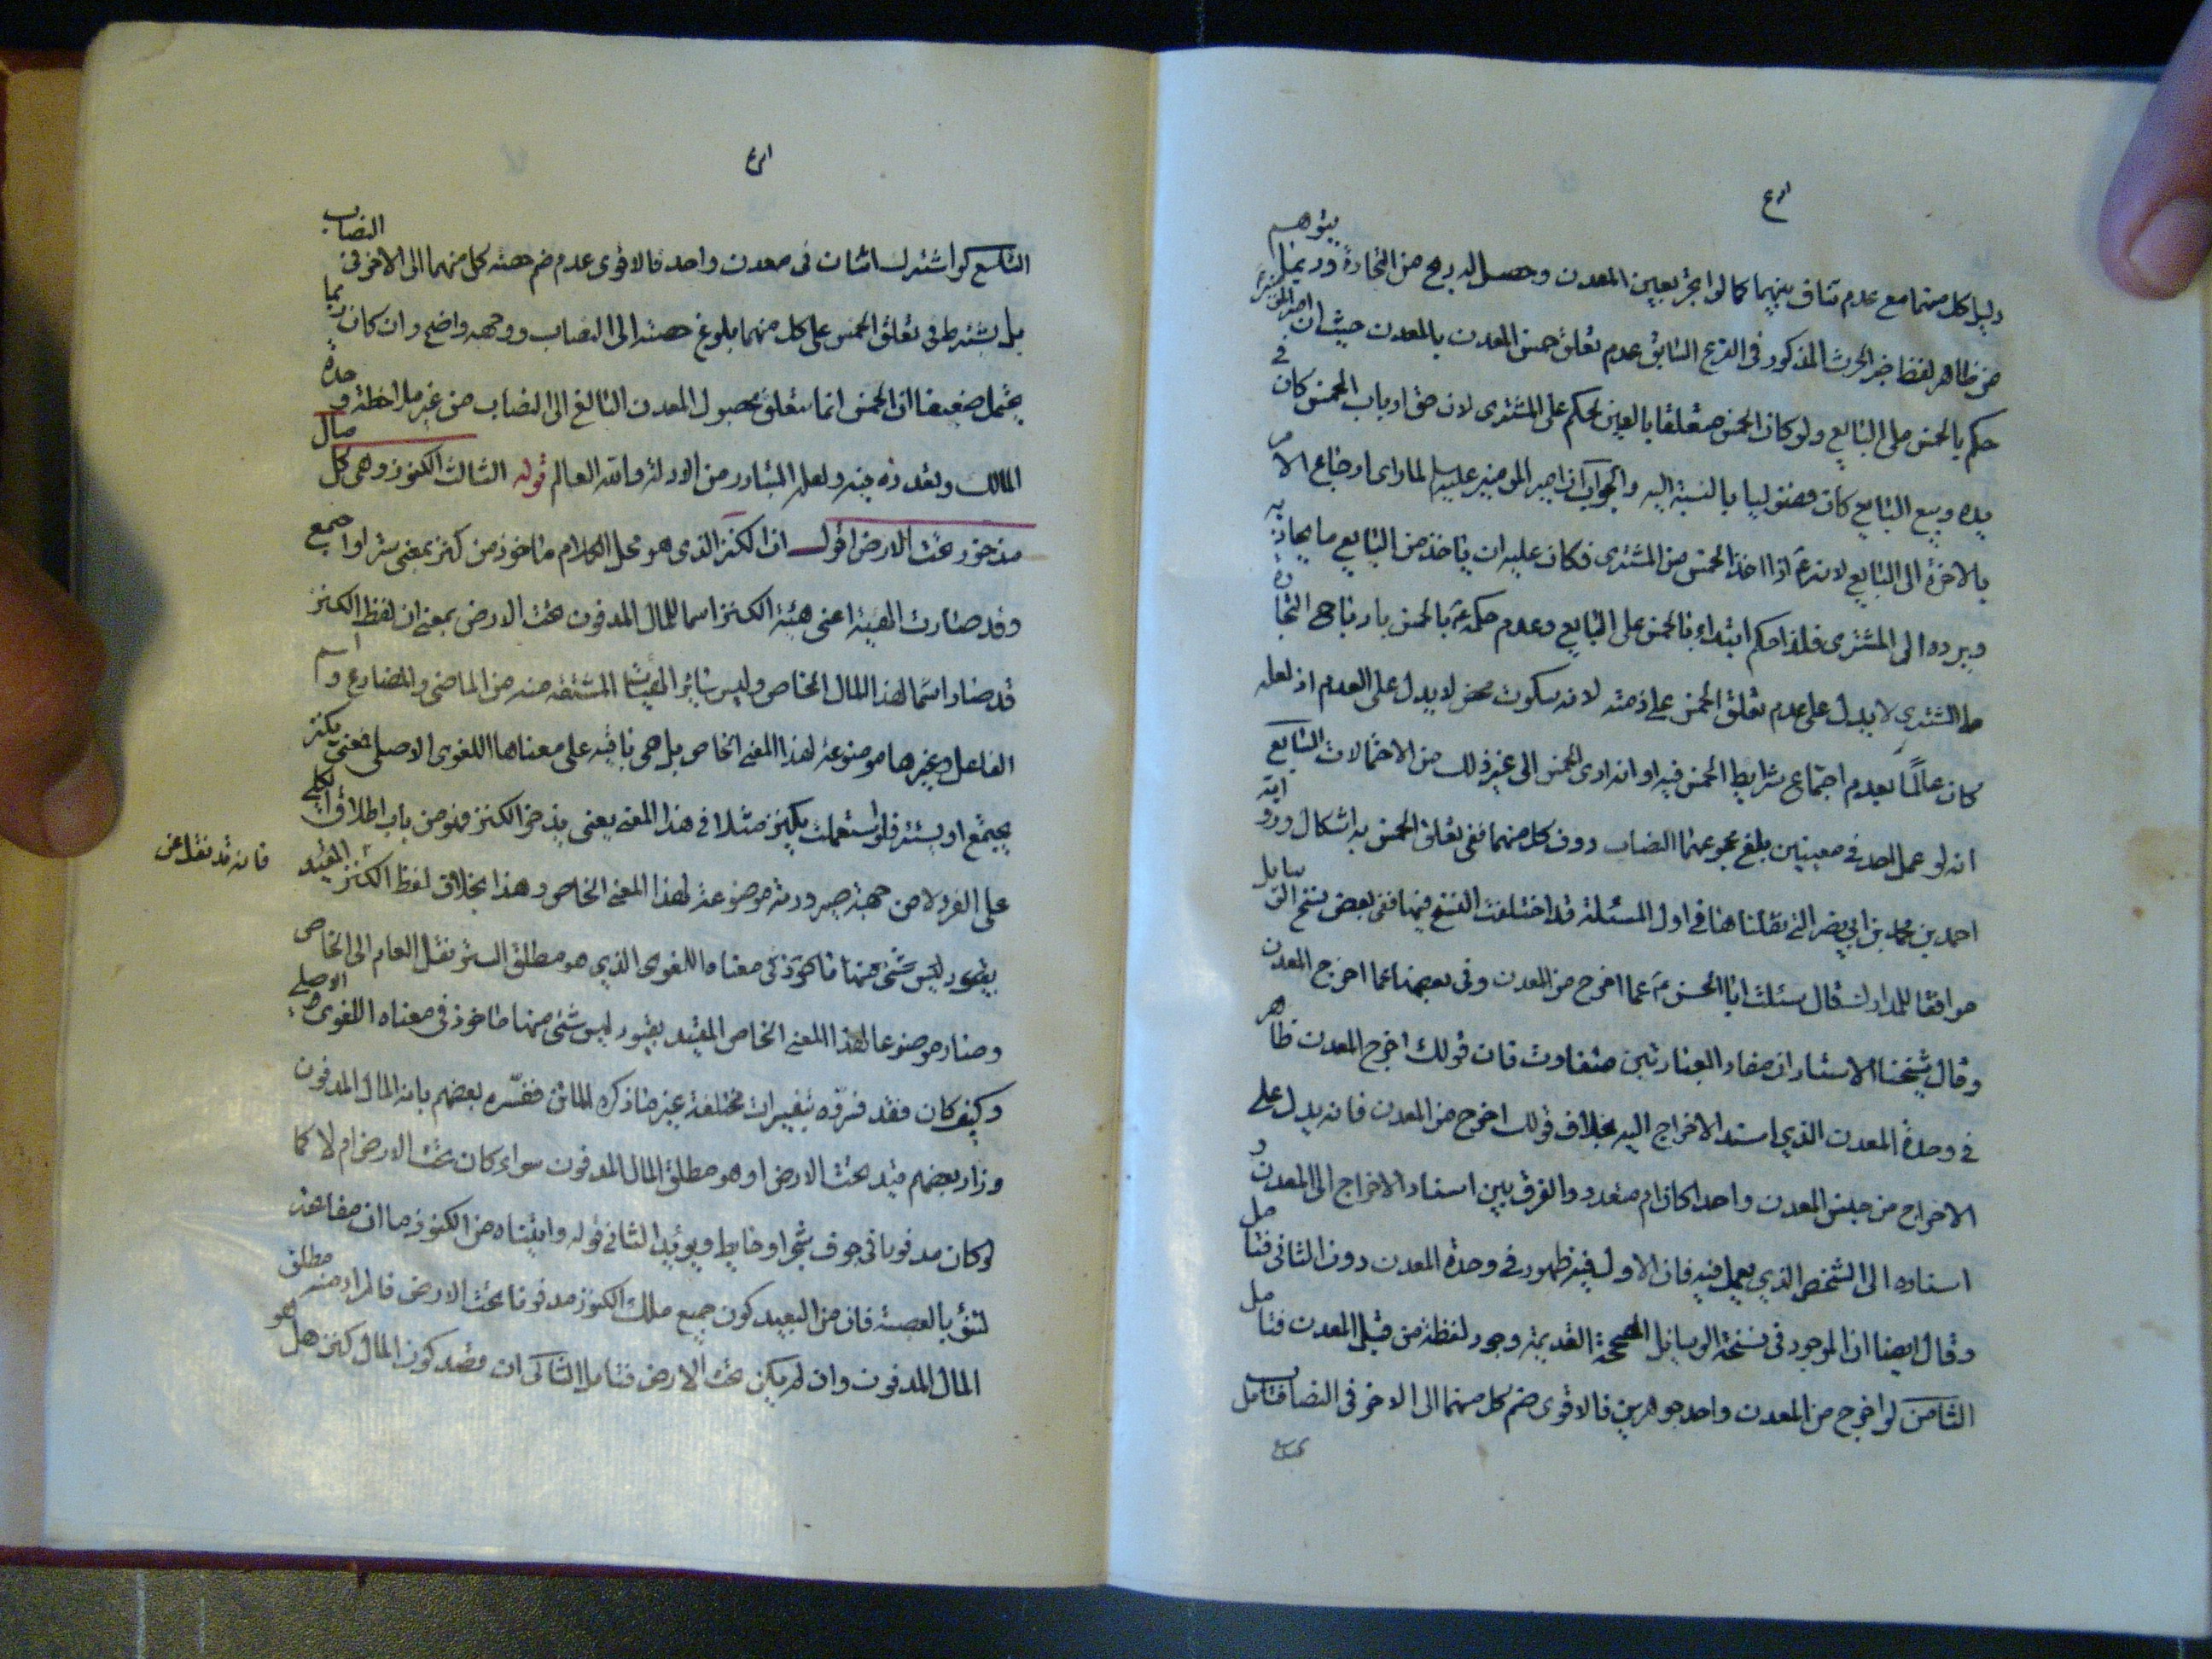 دليل كل منهما مع عدم تناف بينهما كما لو اتجر بعين المعدن وحصل له ربح من التجارة وربما يتوهم
من ظاهر لفظ خبر الحرث المذكور في الفرع السابق عدم تعلق خمس المعدن بالمعدن حيث ان امير المؤمنين
حكم بالخمس على البايع ولو كان الخمس متعلقا بالعين لحكم على المشتري لان حق ارباب الخمس كان في
يده وبيع البايع كان فضوليا بالنسبة اليه والجواب ان امير المؤمنين عليه السلام لما راى اوضاع الامر
بالاخرة الى البايع لانه ع اذا اخذ الخمس من المشتري فكان عليه ان ياخذ من البايع ما يحاذيه
ويرده الى المشتري فلذا حكم ابتداء بالخمس على البايع وعدم حكمه ع بالخمس بارباح التجارة
على المشتري لا يدل على عدم تعلق الخمس على ذمته لانه سكوت محض لا يدل على العدم اذ لعله
كان عالما بعدم اجتماع شرايط الخمس فيه او انه ادى الخمس الى غير ذلك من الاحتمالات السابع
انه لو عمل احد في معدنين بلغ مجموعهما النصاب دون كل منهما ففي تعلق الخمس به اشكال ورواية
احمد بن محمد بن ابي نصر التي نقلناها في اول المسئلة قد اختلفت النسخ فيها ففي بعض نسخ الوسايل
موافقا للمدارك قال سئلت ابا الحسن ع عما اخرج من المعدن وفي بعضها عما اخرج المعدن
وقال شيخنا الاستاد ان مفاد العبارتين متفاوت فان قولك اخرج المعدن ظاهر
في وحدة المعدن الذي اسند الاخراج اليه بخلاف قولك اخرج من المعدن فانه يدل على
الاخراج من جنس المعدن واحدا كان ام متعدد والفرق بين اسناد الاخراج الى المعدن و
اسناده الى الشخص الذي يعمل فيه فان الاول فيه ظهور في وحدة المعدن دون الثاني فتامل
وقال ايضا ان الموجود في نسخة الوسايل المصححة القديمة وجود لفظة من قبل المعدن فتامل
الثامن لو اخرج من المعدن واحد جوهرين فالاقوى ضم كل منهما الى الاخر في النصاب فتامل
التاسع لو اشترك اثنان في معدن واحد فالاقوى عدم ضم حصته كل منهما الى الاخر في النصاب
بل يشترط في تعلق الخمس على كل منهما بلوغ حصته الى النصاب ووجهه واضح وان كان ربما
يحتمل ضعيفا ان الخمس انما يتعلق بحصول المعدن البالغ الى النصاب من غير ملاحظة وحدة
المالك وتعدده فيه ولعله المتبادر من الادلة والله العالم قوله الثالث الكنوز وهي كل مال
مذخور تحت الارض اقول ان الكنز الذي هو محل الكلام ماخوذ من كنز بمعنى ستر او جمع
وقد صارت الهيئة اعني هيئة الكنز اسما للمال المدفون تحت الارض بمعنى ان لفظ الكنز
قد صار اسما لهذا المال الخاص وليس ساير الهيئات المشتقة منه من الماضي والمضارع واسم
الفاعل وغيرها موضوعة لهذا المعنى الخاص بل هي باقية على معناها اللغوي الاصلي فمعنى يكنز
يجتمع او يستر فلو استعملت يكنز مثلا في هذا المعنى يعني يذخر الكنز فهو من باب اطلاق الكلي
على الفرد لا من جهة صيرورته موضوعة لهذا المعنى الخاص وهذا بخلاف لفظ الكنز
فانه قد نقل عن
المقيد
بقيود ليس شئ منها ماخوذ في معناه اللغوي الذي هو مطلق الستر نقل العام الى الخاص
وصار موضوعا لهذا المعنى الخاص المقيد بقيود ليس شئ منها ماخوذ في معناه اللغوي الاصلي
وكيف كان فقد فسروه بتفسيرات مختلفة غير ما ذكره الماتن ففسره بعضهم بانه المال المدفون
وزاد بعضهم قيد تحت الارض او هو مطلق المال المدفون سواء كان تحت الارض ام لا كما
لو كان مدفونا في جوف شجر او حايط ويؤيد الثاني قوله واتيناه من الكنوز ما ان مفاتحه
لتنوء بالعصبة فان من البعيد كون جميع ملك الكنوز مدفونا تحت الارض فالمراد منه مطلق
المال المدفون وان لم يكن تحت الارض فتامل الثاني ان قصد كون المال كنز هل هو